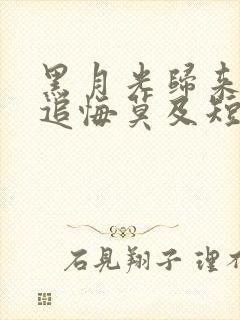 黑月光歸來
追悔莫及短
石見翔子 理不